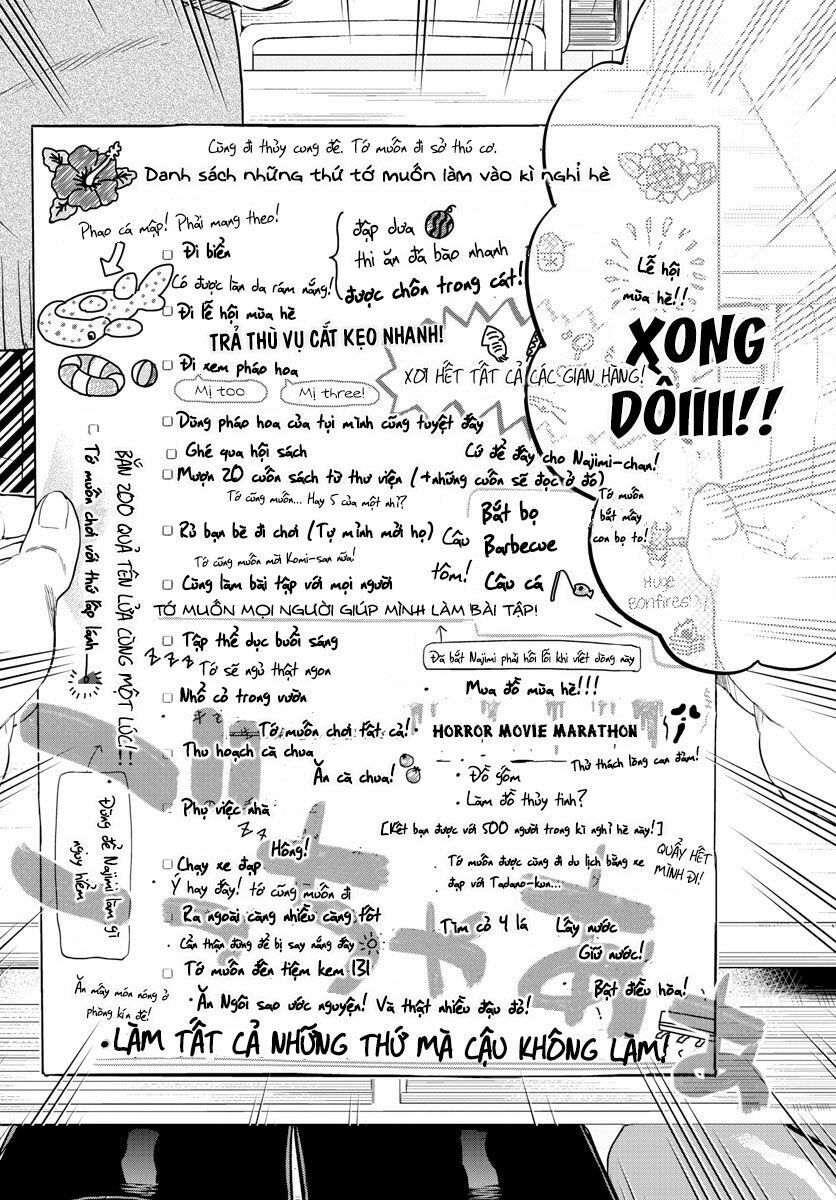 Cùng đi thủy cung đê. Tớ muốn đi sở thú cơ.
Danh sách những thứ tớ muốn làm vào kì nghỉ hè
Phao cá mập! Phải mang theo!
Đi biển
đập dưa
thi ăn đá bào nhanh
được chôn trong cát!
Có được làn da rám nắng!
Đi lễ hội mùa hè
TRẢ THÙ VỤ CẮT KẸO NHANH!
Lễ hội
mùa hè!!
XONG
DỒIIII!!
Đi xem pháo hoa
Mị too
Mị three!
XƠI HẾT TẤT CẢ CÁC GIAN HÀNG!
Dùng pháo hoa của tụi mình cũng tuyệt đấy
Ghé qua hội sách
Cứ để đấy cho Najimi-chan!
Mượn 20 cuốn sách từ thư viện (+những cuốn sẽ đọc ở đó)
Tớ cũng muốn... Hay 5 của một nhỉ?
Rủ bạn bè đi chơi (Tự mình mời họ)
Tớ cũng muốn mời Komi-san nữa!
Cùng làm bài tập với mọi người
Câu
tôm!
Bắt bọ
Barbecue
Câu cá
Tớ muốn
bắt mấy
con bọ to!
Huge
Bonfires!
BẮN 200 QUẢ TÊN LỬA CÙNG MỘT LÚC!!
Tớ muốn chơi với thứ lấp lánh
TỚ MUỐN MỌI NGƯỜI GIÚP MÌNH LÀM BÀI TẬP!
Tập thể dục buổi sáng
zzz
Tớ sẽ ngủ thật ngon
Đã bắt Najimi phải hối lỗi khi viết dòng này
Nhổ cỏ trong vườn
Mua đồ mùa hè!!!
Tớ muốn chơi tất cả!
HORROR MOVIE MARATHON
Thử thách lòng can đảm!
Thu hoạch cà chua
Ăn cà chua!
Đồ gốm
Làm đồ thủy tinh?
Phụ việc nhà
zz
[Kết bạn được với 500 người trong kì nghỉ hè này!]
Hông!
Chạy xe đạp
Ý hay đấy! tớ cũng muốn đi
Tớ muốn được cùng đi du lịch bằng xe
đạp với Tadano-kun...
QUẨY HẾT
MÌNH ĐI!
Đừng để Najimi làm gì
nguy hiểm
Ra ngoài càng nhiều càng tốt
Cẩn thận đừng để bị say nắng đấy
Tìm cỏ 4 lá
Lấy nước
Giữ nước!
Tớ muốn đến tiệm kem 131
Bật điều hòa!
Ăn mấy món nóng ở
phòng kín đê!
Ăn Ngôi sao ước nguyện! Và thật nhiều đậu đỏ!
LÀM TẤT CẢ NHỮNG THỨ MÀ CẬU KHÔNG LÀM!